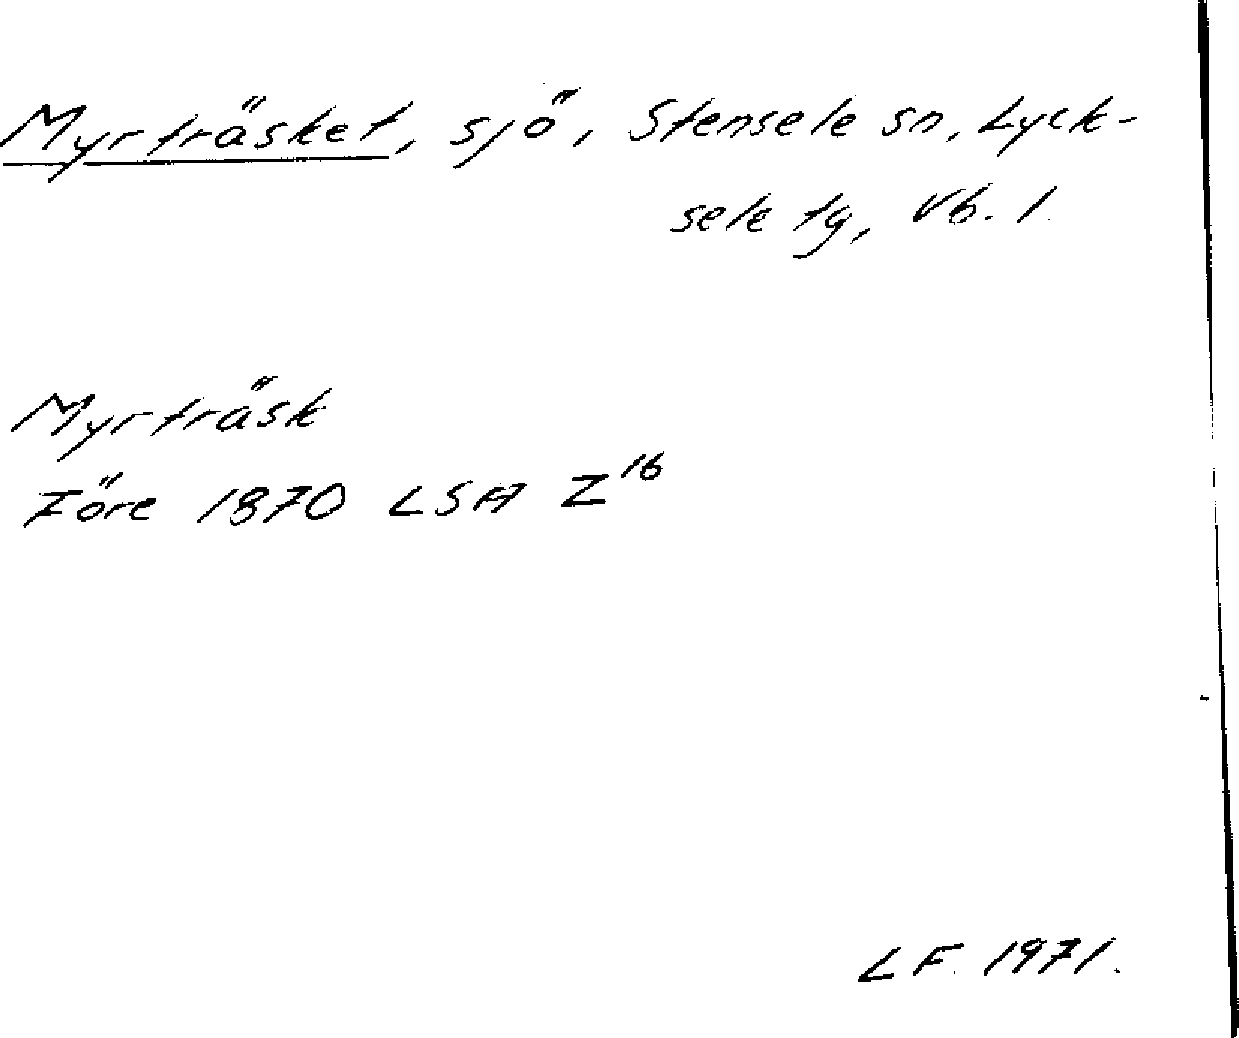 Myrträsket, sjö, Stensele sn, Lyck-
sele tg, Vb. l.
Myrträsk
Före 1870 LSA Z¹⁶
LF. 1971.